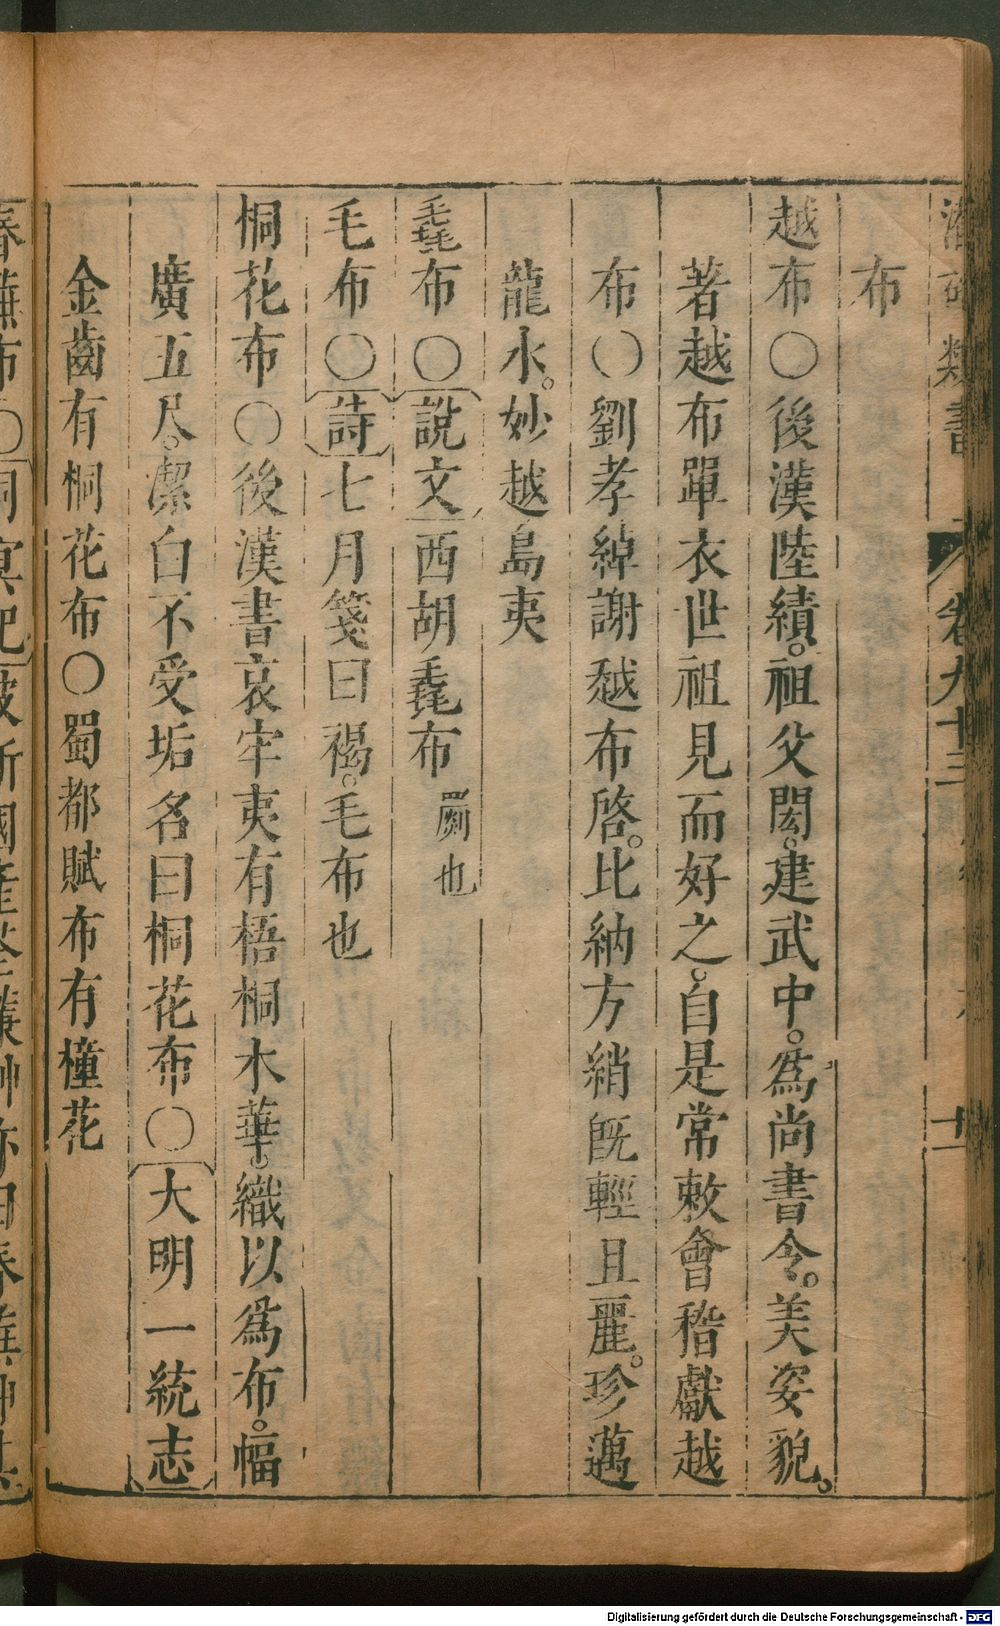 類書 卷九十三 十一
布
越布〇後漢陸績。祖父閎。建武中。爲尚書令。美姿貌。
著越布單衣世祖見而好之。自是常敕會稽獻越
布〇劉孝綽謝越布啓。比納方綃旣輕且麗。珍邁
龍水。妙越島夷
毳布〇說文西胡毳布 罽也
毛布〇詩七月箋曰褐。毛布也
桐花布〇後漢書哀牢夷有梧桐木華。織以爲布。幅
廣五尺。潔白不受垢名曰桐花布〇大明一統志
金齒有桐花布〇蜀都賦布有橦花
國產
Digitalisierung gefördert durch die Deutsche Forschungsgemeinschaft - DFG